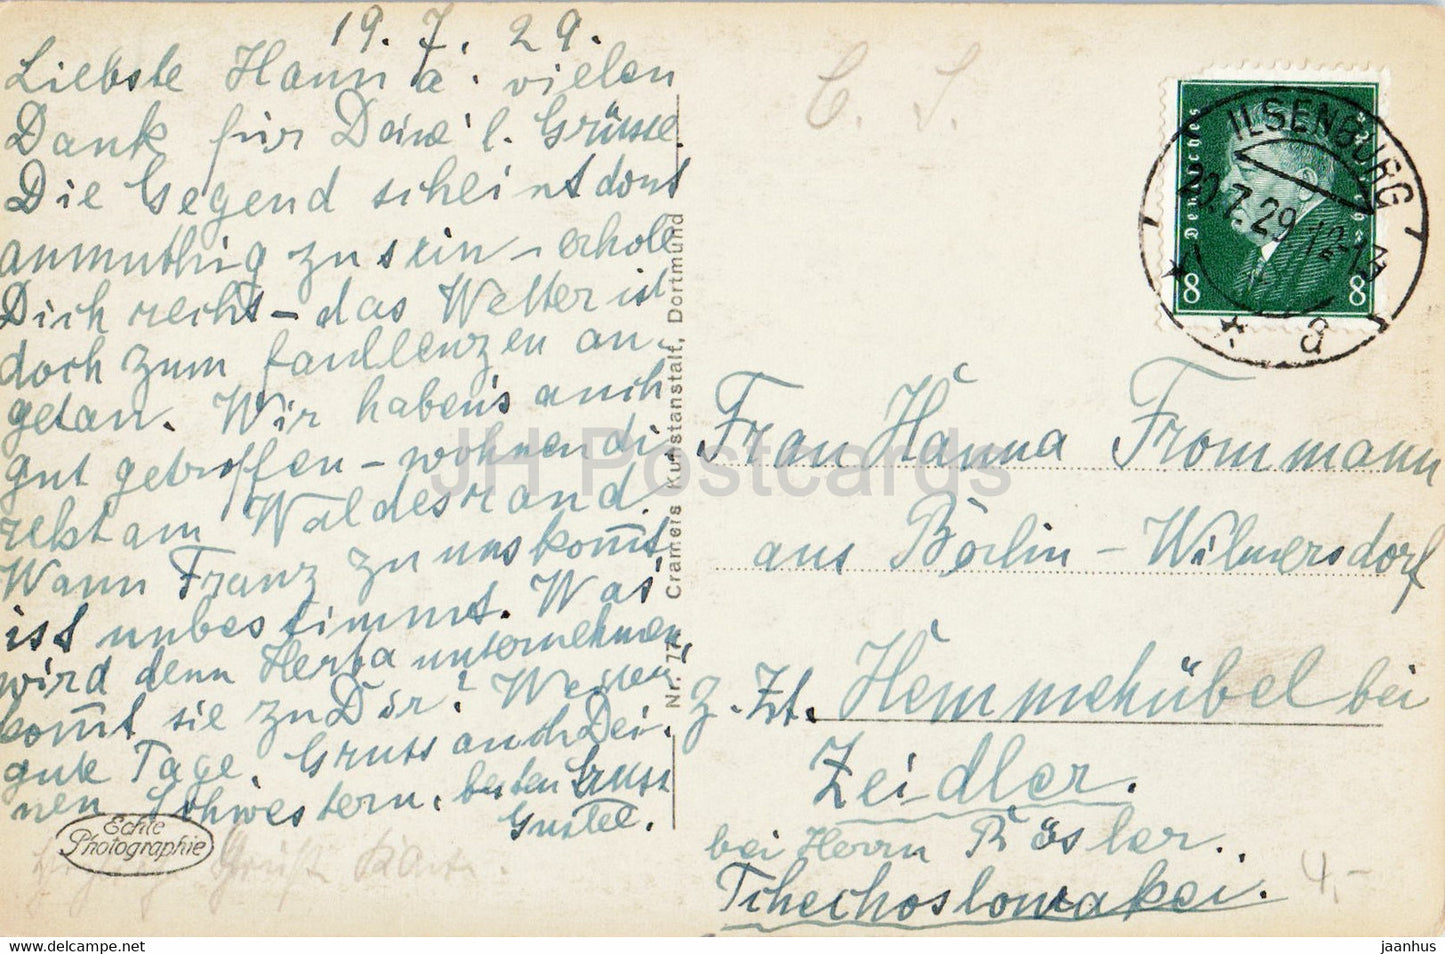 19. 7. 29.
Liebste Hanna! vielen
Dank für Deine l. Grüsse.
Die Gegend scheint dort
anmuthig zu sein – erhole
Dich recht – das Wetter ist
doch zum faullenzen an-
getan. Wir haben's auch
gut getroffen – wohnen di-
rekt am Waldesrand.
Wann Franz zu uns kom̄t
ist unbestimmt. Was
wird denn Herta unternehmen,
kom̄t sie zu Dir?
gute Tage. Gruss auch Dei-
nen Schwestern. besten Gruss
Gustel.
Echte
Photographie
Nr. 77 Cramers Kunstanstalt, Dortmund
Deutsches Reich
8 8
ILSENBURG
20.7.29. 12-13
a
Frau Hanna Frommann
aus Berlin – Wilmersdorf
z. Zt. Hemmehübel bei
Zeidler.
bei Herrn Rösler.
Tchechoslowakei.
4,-
JH Postcards
jaanhus
www.delcampe.net